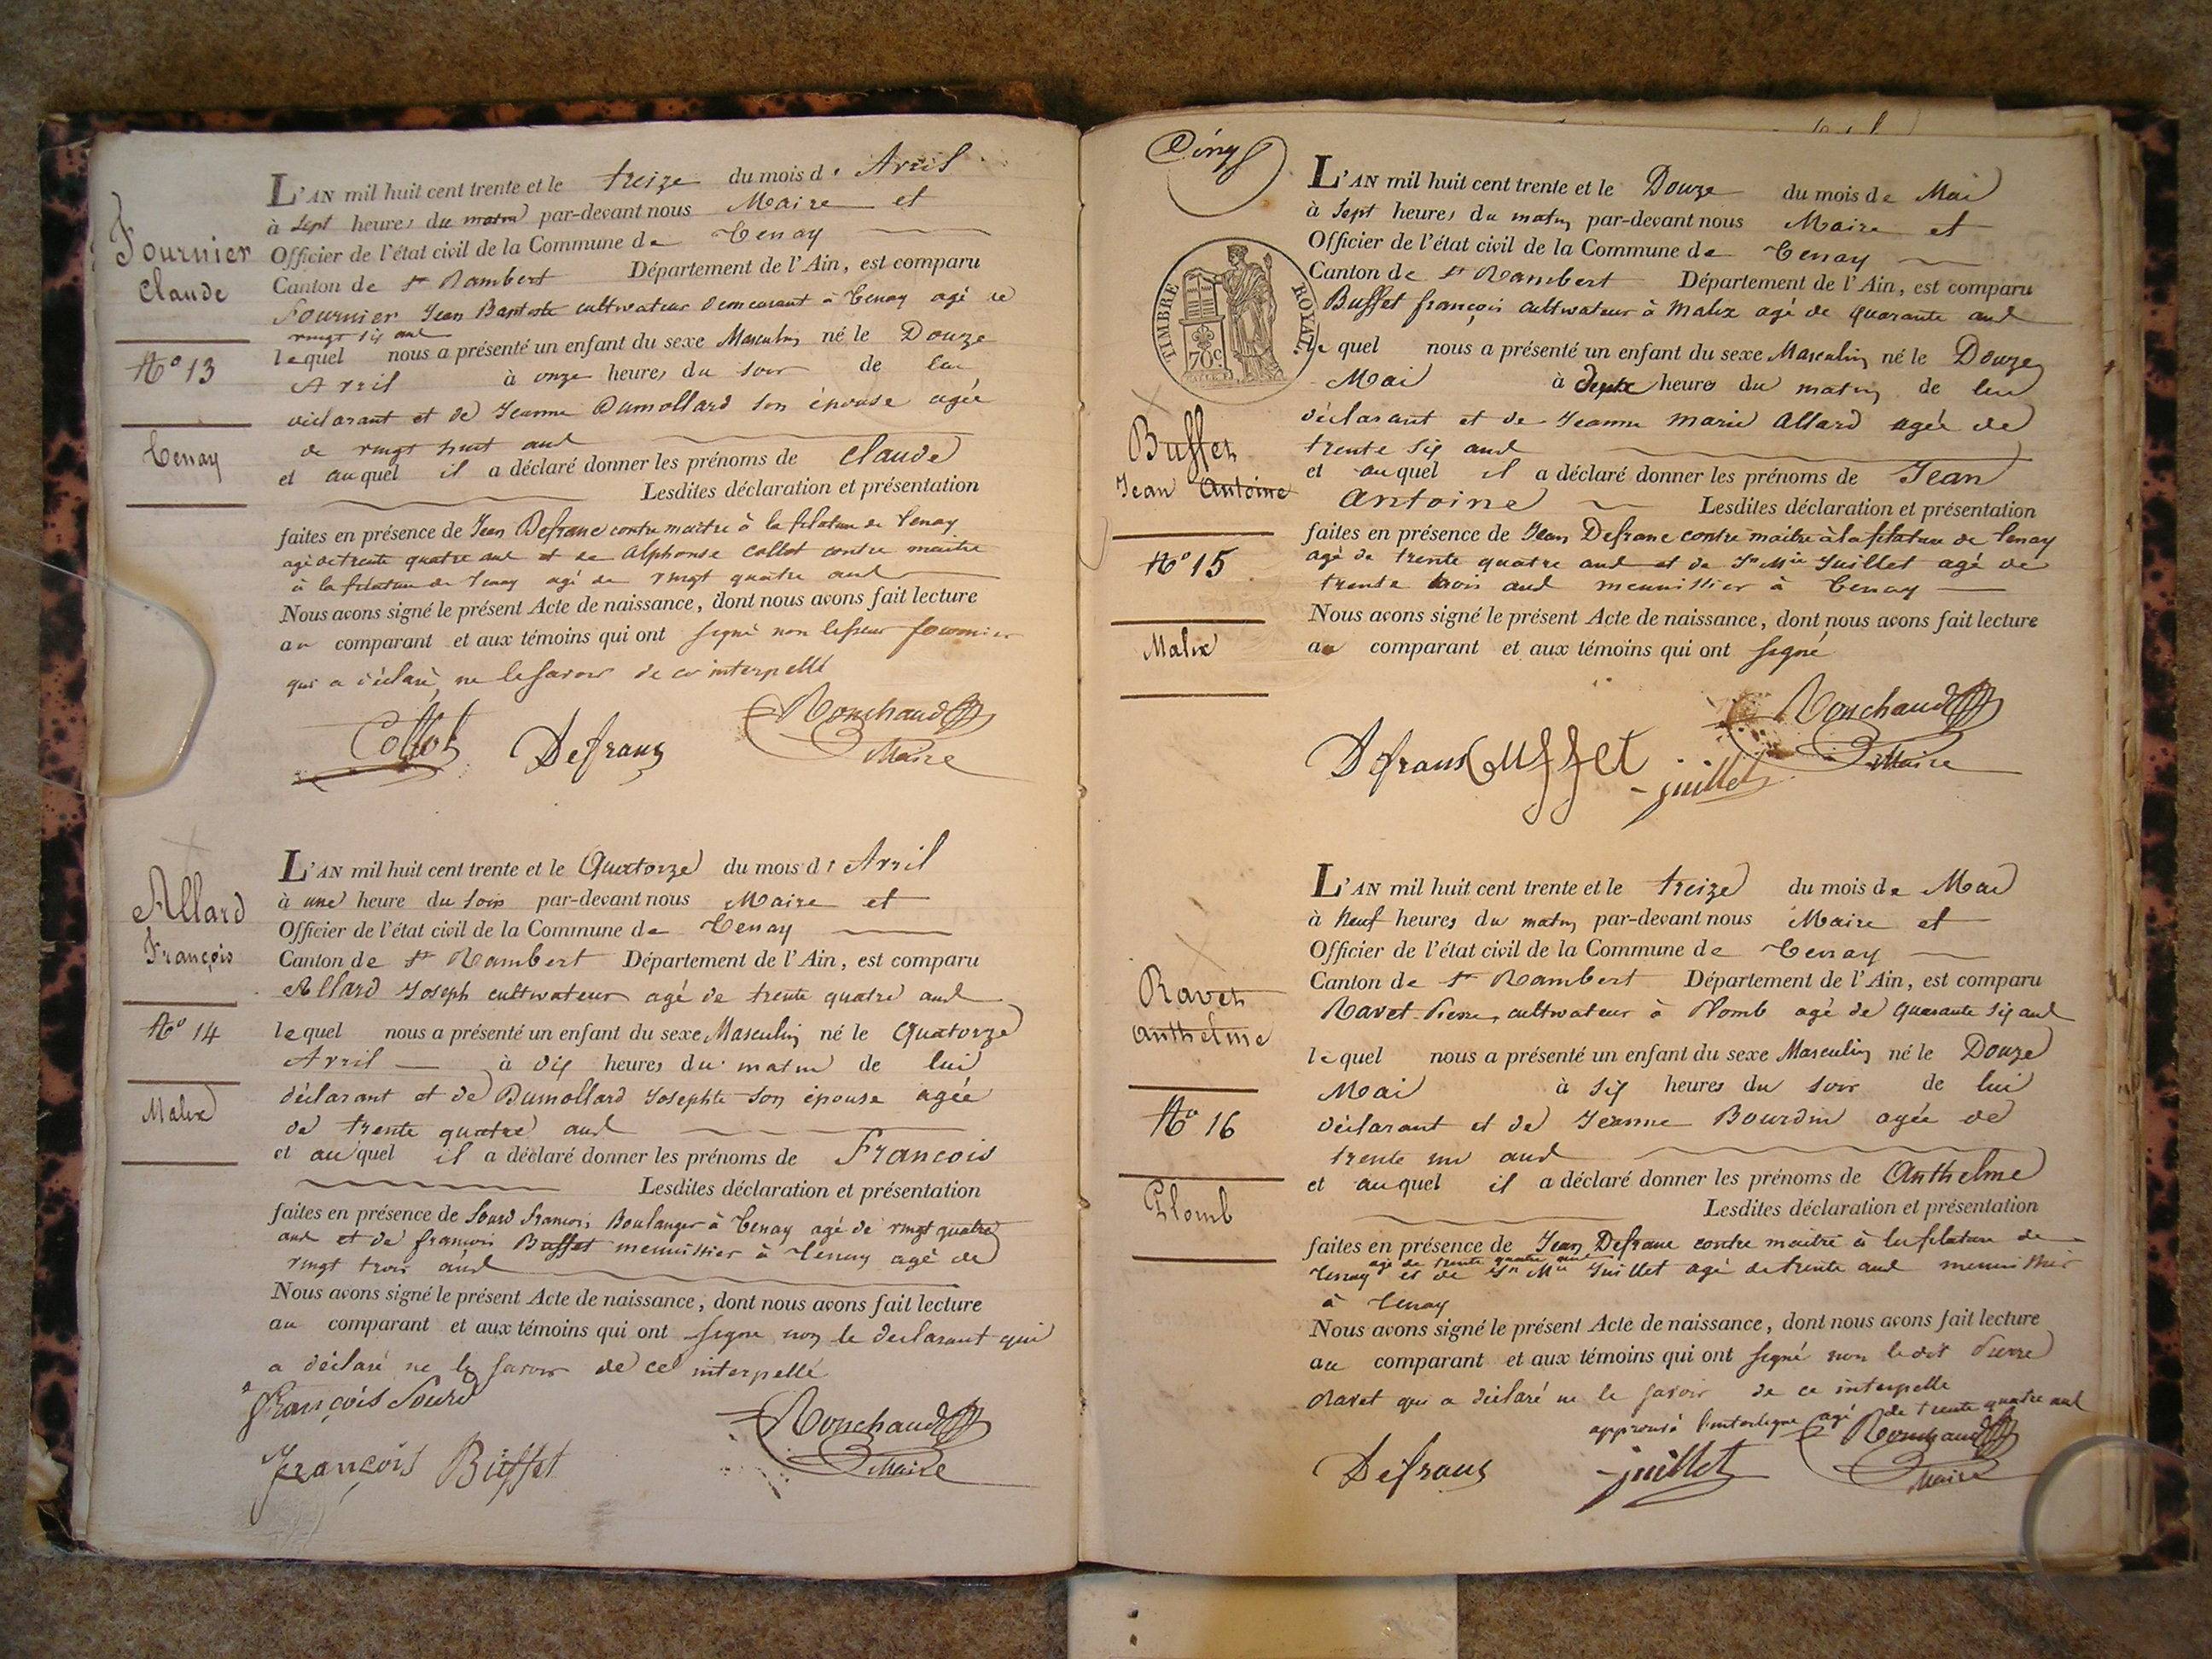 Fournier
Claude
N° 13
Tenay
L'AN mil huit cent trente et le treize du mois de Avril
à sept heures du matin par-devant nous Maire et
Officier de l'état civil de la Commune de Tenay
Canton de St Rambert Département de l'Ain, est comparu
Fournier Jean Baptiste cultivateur demeurant à Tenay agé de
vingt six ans
lequel nous a présenté un enfant du sexe Masculin né le Douze
Avril à onze heures du soir de lui
déclarant et de Jeanne Dumollard son épouse agée
de vingt huit ans
et auquel il a déclaré donner les prénoms de Claude
Lesdites déclaration et présentation
faites en présence de Jean Defranc contre maitre à la filature de Tenay
agé de trente quatre ans et de Alphonse Collot contre maitre
à la filature de Tenay agé de vingt quatre ans
Nous avons signé le présent Acte de naissance, dont nous avons fait lecture
au comparant et aux témoins qui ont signé non le sieur fournier
qui a déclaré ne le savoir de ce interpellé
Collot Defranc Ronchaud
Maire
Allard
François
N° 14
Malix
L'AN mil huit cent trente et le Quatorze du mois de Avril
à une heure du soir par-devant nous Maire et
Officier de l'état civil de la Commune de Tenay
Canton de St Rambert Département de l'Ain, est comparu
Allard Joseph cultivateur agé de trente quatre ans
lequel nous a présenté un enfant du sexe Masculin né le Quatorze
Avril à dix heures du matin de lui
déclarant et de Dumollard Josephte son épouse agée
de trente quatre ans
et auquel il a déclaré donner les prénoms de François
Lesdites déclaration et présentation
faites en présence de Sourd françois Boulanger à Tenay agé de vingt quatre
ans et de françois Buffet menuisier à Tenay agé de
vingt trois ans
Nous avons signé le présent Acte de naissance, dont nous avons fait lecture
au comparant et aux témoins qui ont signé non le déclarant qui
a déclaré ne le savoir de ce interpellé
François Sourd
François Buffet Ronchaud
Maire
Cinq
TIMBRE ROYAL
70c
Buffet
Jean Antoine
N° 15
Malix
L'AN mil huit cent trente et le Douze du mois de Mai
à sept heures du matin par-devant nous Maire et
Officier de l'état civil de la Commune de Tenay
Canton de St Rambert Département de l'Ain, est comparu
Buffet françois cultivateur à Malix agé de quarante ans
lequel nous a présenté un enfant du sexe Masculin né le Douze
Mai à heures du matin de lui
déclarant et de Jeanne Marie Allard agée de
trente six ans
et auquel il a déclaré donner les prénoms de Jean
Antoine Lesdites déclaration et présentation
faites en présence de Jean Defranc contre maitre à la filature de Tenay
agé de trente quatre ans et de Jn Mie Juillet agé de
trente trois ans menuisier à Tenay
Nous avons signé le présent Acte de naissance, dont nous avons fait lecture
au comparant et aux témoins qui ont signé
Defranc Buffet juillet Ronchaud
Maire
Ravet
Anthelme
N° 16
Plomb
L'AN mil huit cent trente et le treize du mois de Mai
à Neuf heures du matin par-devant nous Maire et
Officier de l'état civil de la Commune de Tenay
Canton de St Rambert Département de l'Ain, est comparu
Ravet Pierre, cultivateur à Plomb agé de quarante six ans
lequel nous a présenté un enfant du sexe Masculin né le Douze
Mai à six heures du soir de lui
déclarant et de Jeanne Bourdin agée de
trente un ans
et auquel il a déclaré donner les prénoms de Anthelme
Lesdites déclaration et présentation
faites en présence de Jean Defranc contre maitre à la filature de
agé de trente quatre ans
Tenay et de Jn Mie Juillet agé de trente ans menuisier
à Tenay
Nous avons signé le présent Acte de naissance, dont nous avons fait lecture
au comparant et aux témoins qui ont signé non ledit Pierre
Ravet qui a déclaré ne le savoir de ce interpellé
approuvé l'interligne agé de trente quatre ans
Defranc juillet Ronchaud
Maire